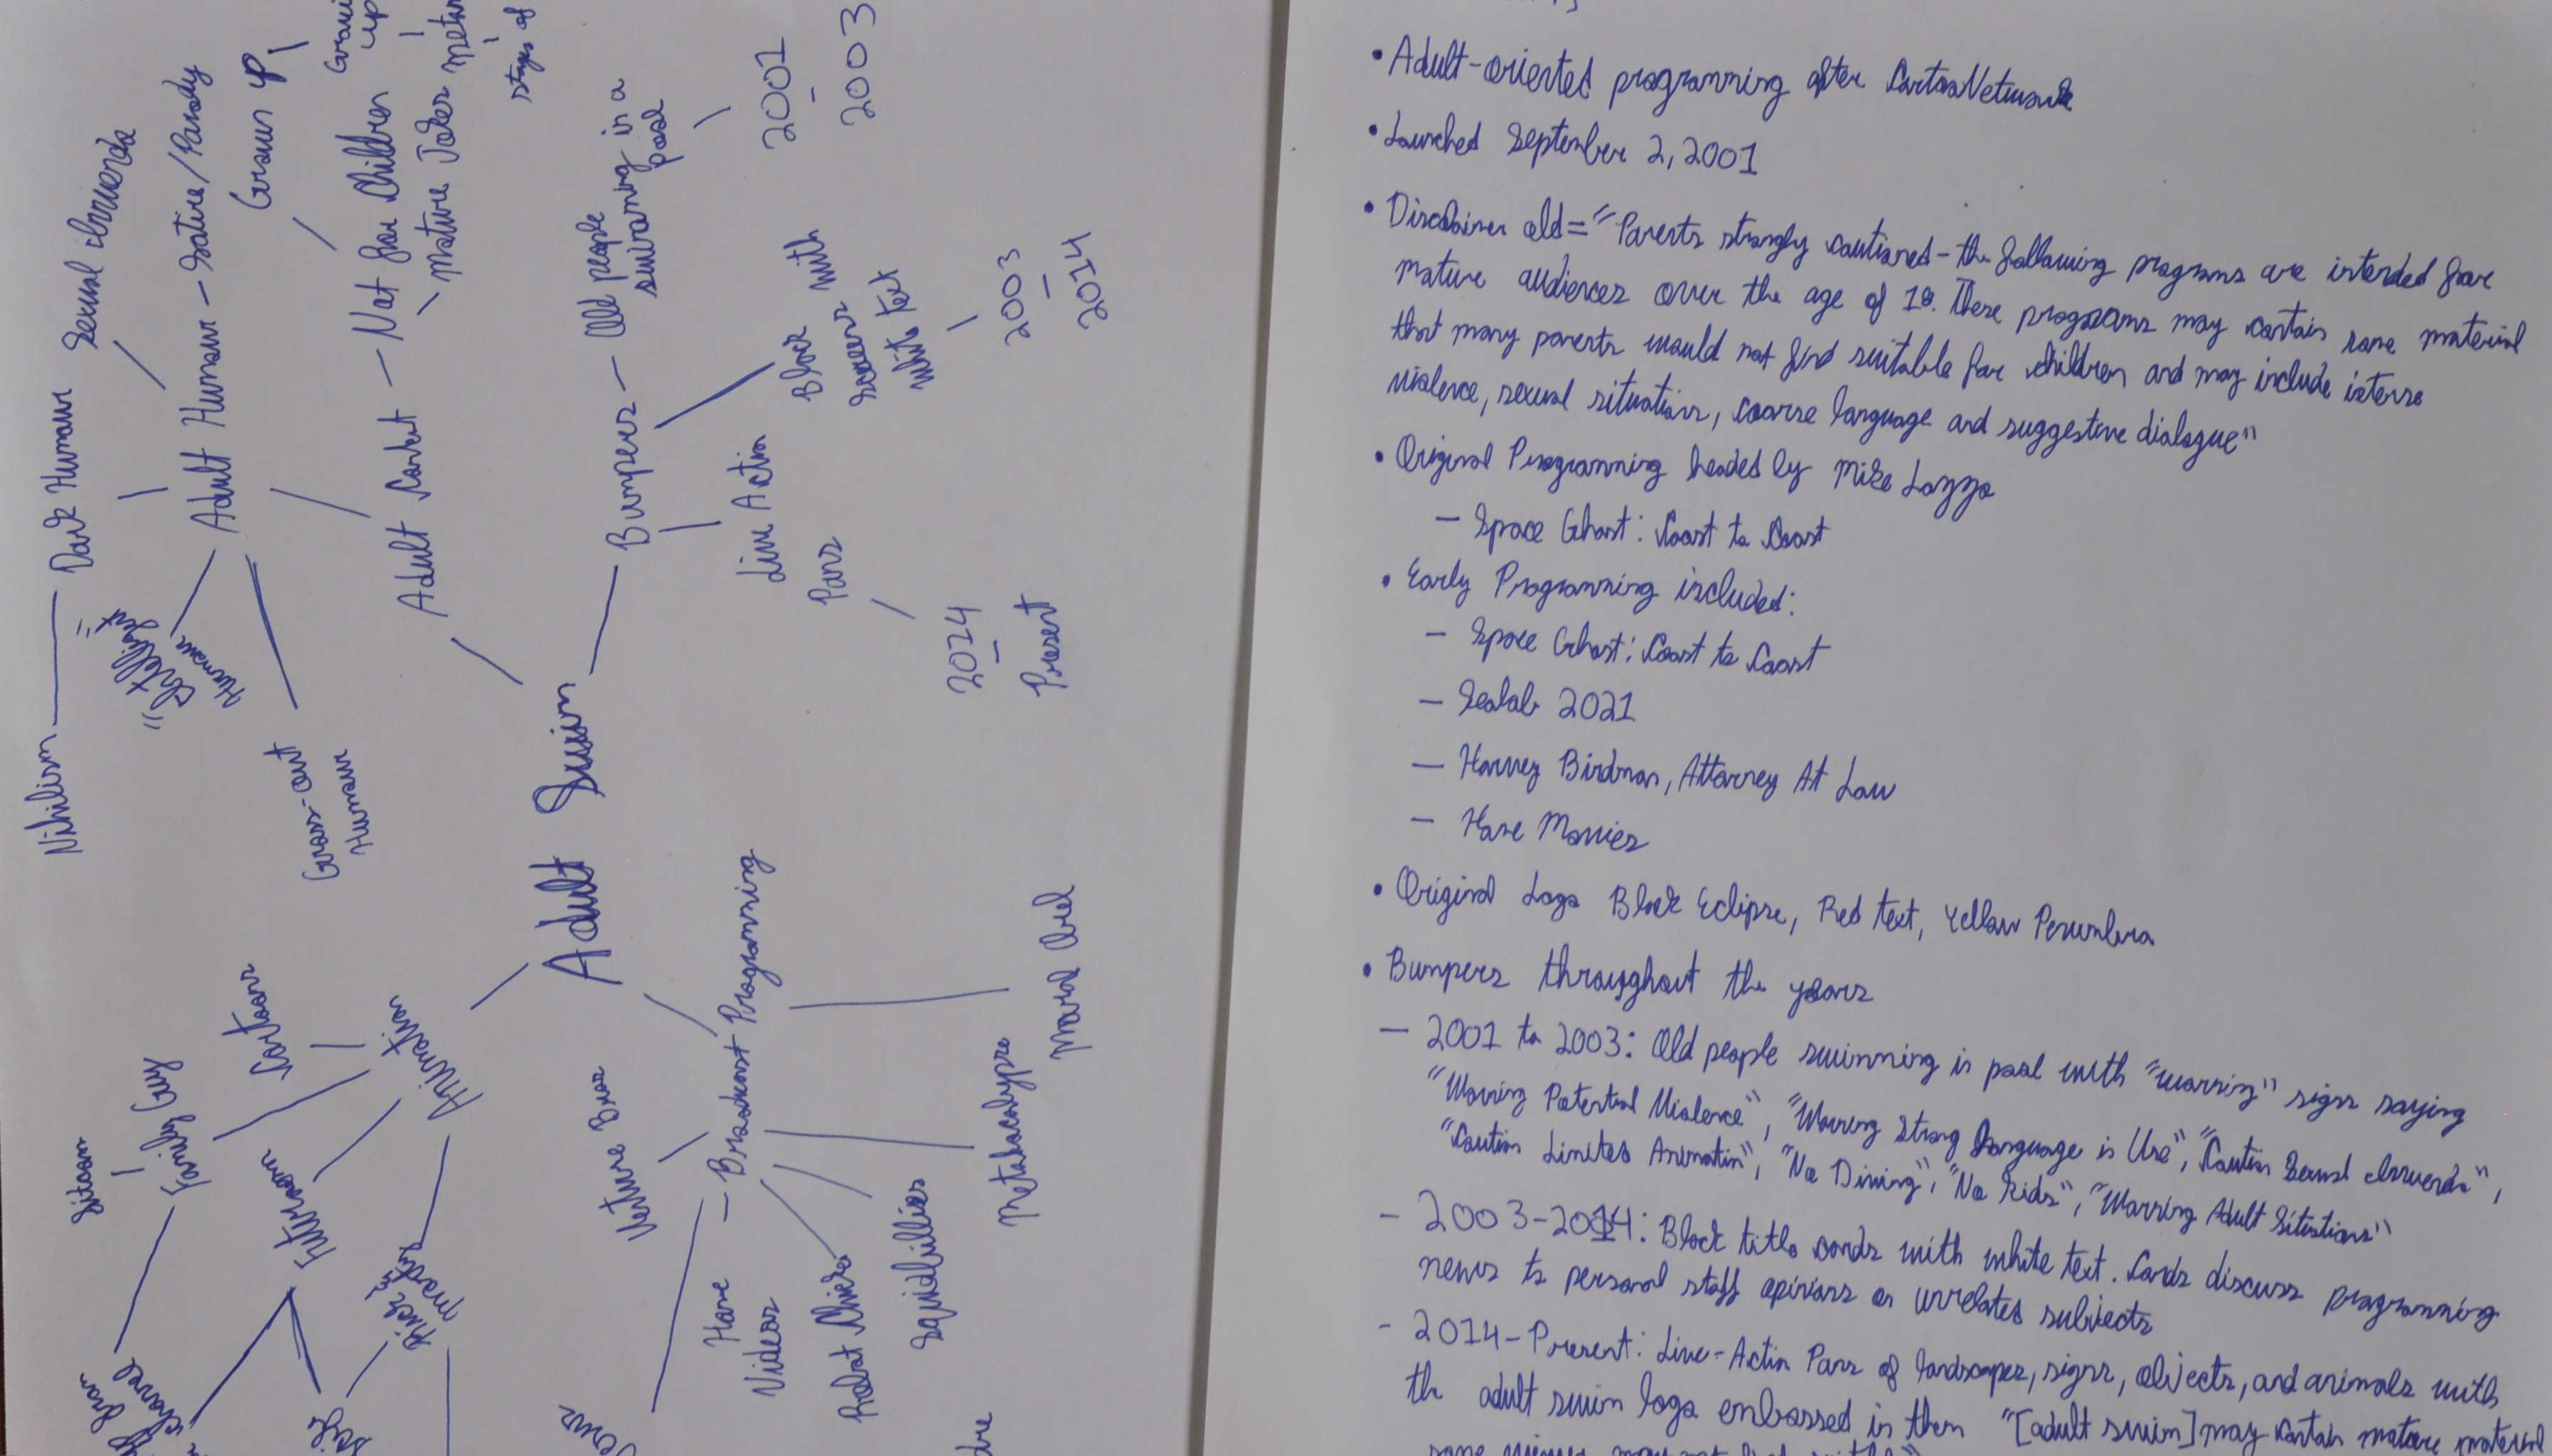 Nihilism
Dark Humour
Sexual Innuendo
"Intelligent"
Humour
Adult Humour - Satire/Parody
Gross-out
Humour
Grown up
up
Adult Content - Not for Children
- Mature Jokes
stages of
Adult Swim
Bumpers - Old people
swimming in a
pool
2001
-
2003
Black
screens with
white text
2003
-
2014
Live Action
Pans
2024
-
Present
Animation
Cartoons
Family Guy
Sitcom
Futurama
Rick and
Morty
- Broadcast Programming
Venture Bros
Home
Videos
Robot Chicken
Squidbillies
Metalocalypse
Moral Orel
• Adult-oriented programming after CartooNetwork
• Launched September 2, 2001
• Disclaimer old = "Parents strongly cautioned - the following programs are intended for
mature audiences over the age of 18. These programs may contain some material
that many parents would not find suitable for children and may include intense
violence, sexual situations, coarse language and suggestive dialogue"
• Original Programming headed by Mike Lazzo
- Space Ghost: Coast to Coast
• Early Programming included:
- Space Ghost: Coast to Coast
- Sealab 2021
- Harvey Birdman, Attorney At Law
- Home Movies
• Original Logo Black Eclipse, Red text, Yellow Penumbra
• Bumpers throughout the years
- 2001 to 2003: Old people swimming in pool with "warning" signs saying
"Warning Potential Violence", "Warning Strong Language in Use", "Caution Sexual Innuendo",
"Caution Limited Animation", "No Diving", "No Kids", "Warning Adult Situations"
- 2003-2014: Black title cards with white text. Cards discuss programming
news to personal staff opinions on unrelated subjects
- 2014-Present: Live-Action Pans of landscapes, signs, objects, and animals with
the adult swim logo embossed in them "[adult swim] may contain mature material